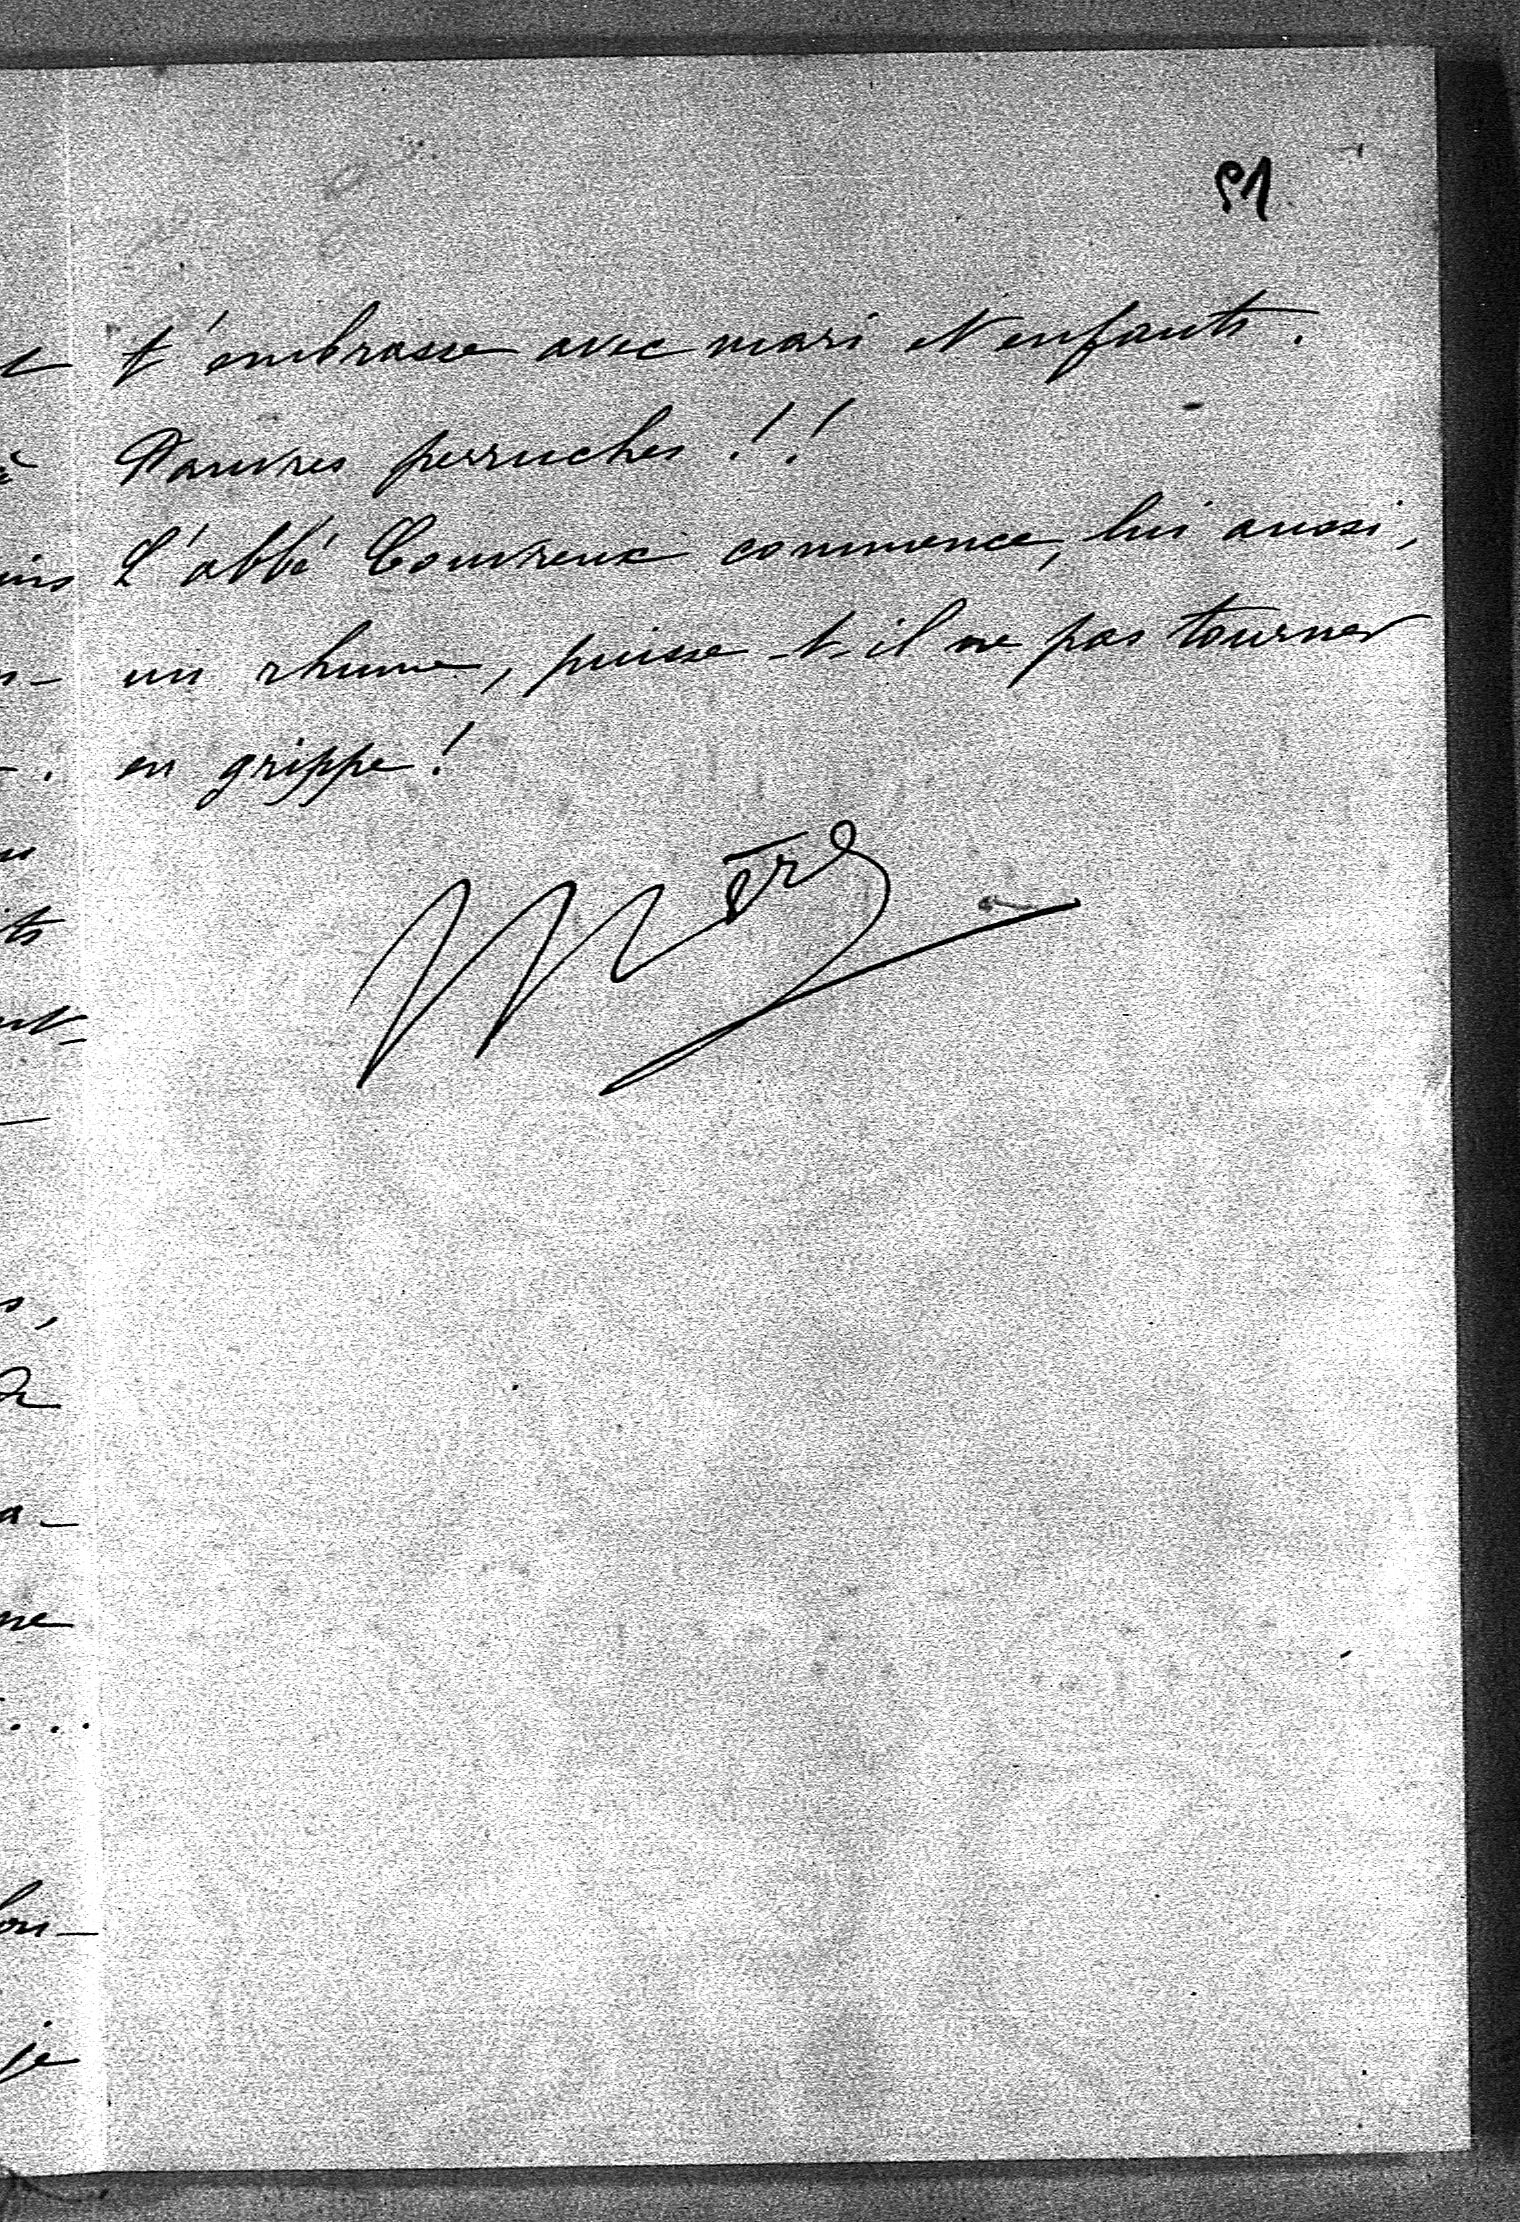 91
t'embrasse avec mari et enfants.
Pauvres perruches !!
L'abbé Couvreux commence, lui aussi,
un rhume, puisse-t-il ne pas tourner
en grippe !
Mère
je